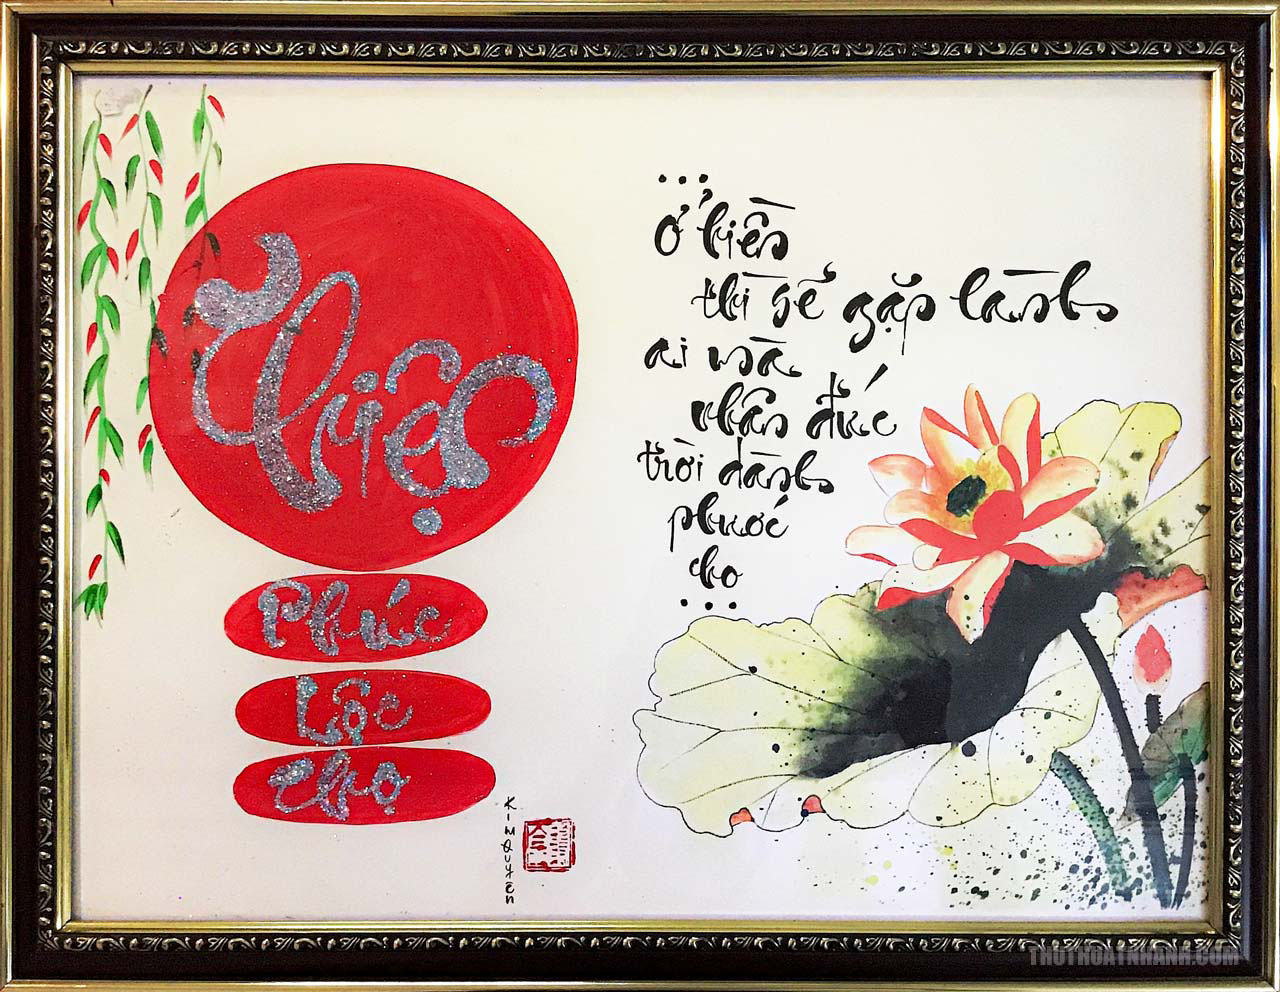 Thiện
Phúc
Lộc
Thọ
...
Ở hiền
thì sẽ gặp lành
ai mà
nhân đức
trời dành
phước
cho
...
KIM QUYÊN
THUTHUATNHANH.COM